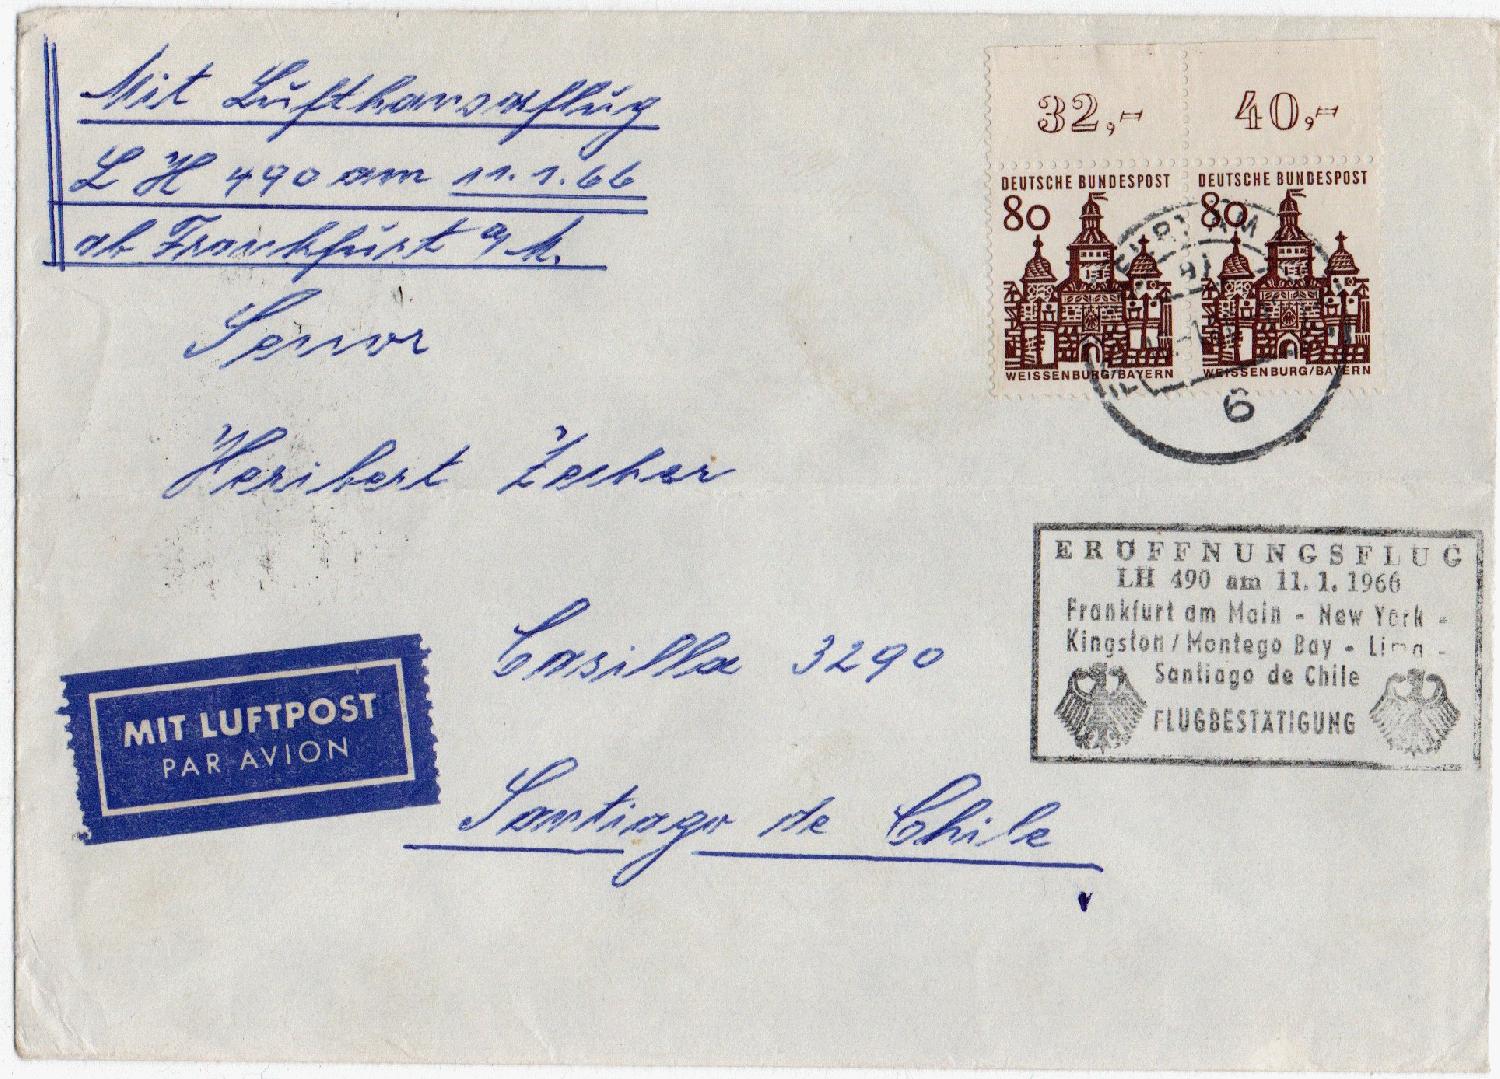 Mit Lufthansaflug
LH 490 am 11.1.66
ab Frankfurt a/M.
32,- 40,-
DEUTSCHE BUNDESPOST DEUTSCHE BUNDESPOST
80 80
WEISSENBURG/BAYERN WEISSENBURG/BAYERN
6
Senor
Heribert Zecher
Casilla 3290
Santiago de Chile
ERÖFFNUNGSFLUG
LH 490 am 11.1.1966
Frankfurt am Main - New York -
Kingston/Montego Bay - Lima -
Santiago de Chile
FLUGBESTÄTIGUNG
MIT LUFTPOST
PAR AVION